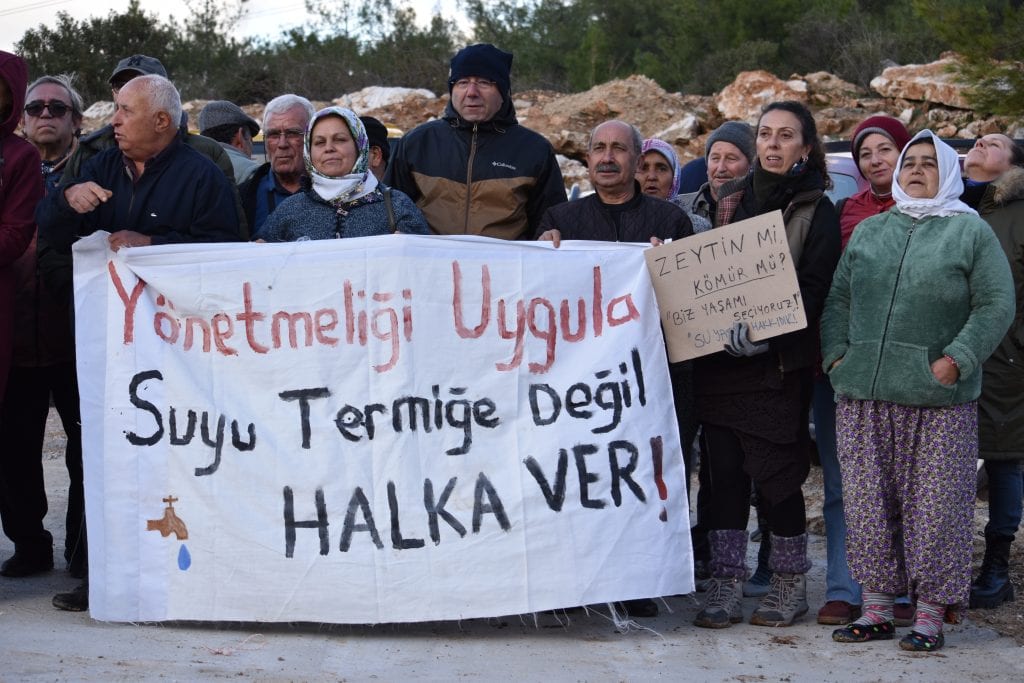 Yönetmeliği Uygula
Suyu Termiğe Değil
HALKA VER!
ZEYTİN Mİ,
KÖMÜR MÜ?
"BİZ YAŞAMI
SEÇİYORUZ!"
"SU HAKKIDIR!
Columbia